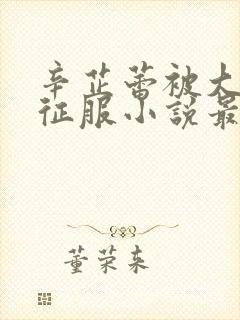 辛芷蕾被大
征服小说最
董荣来